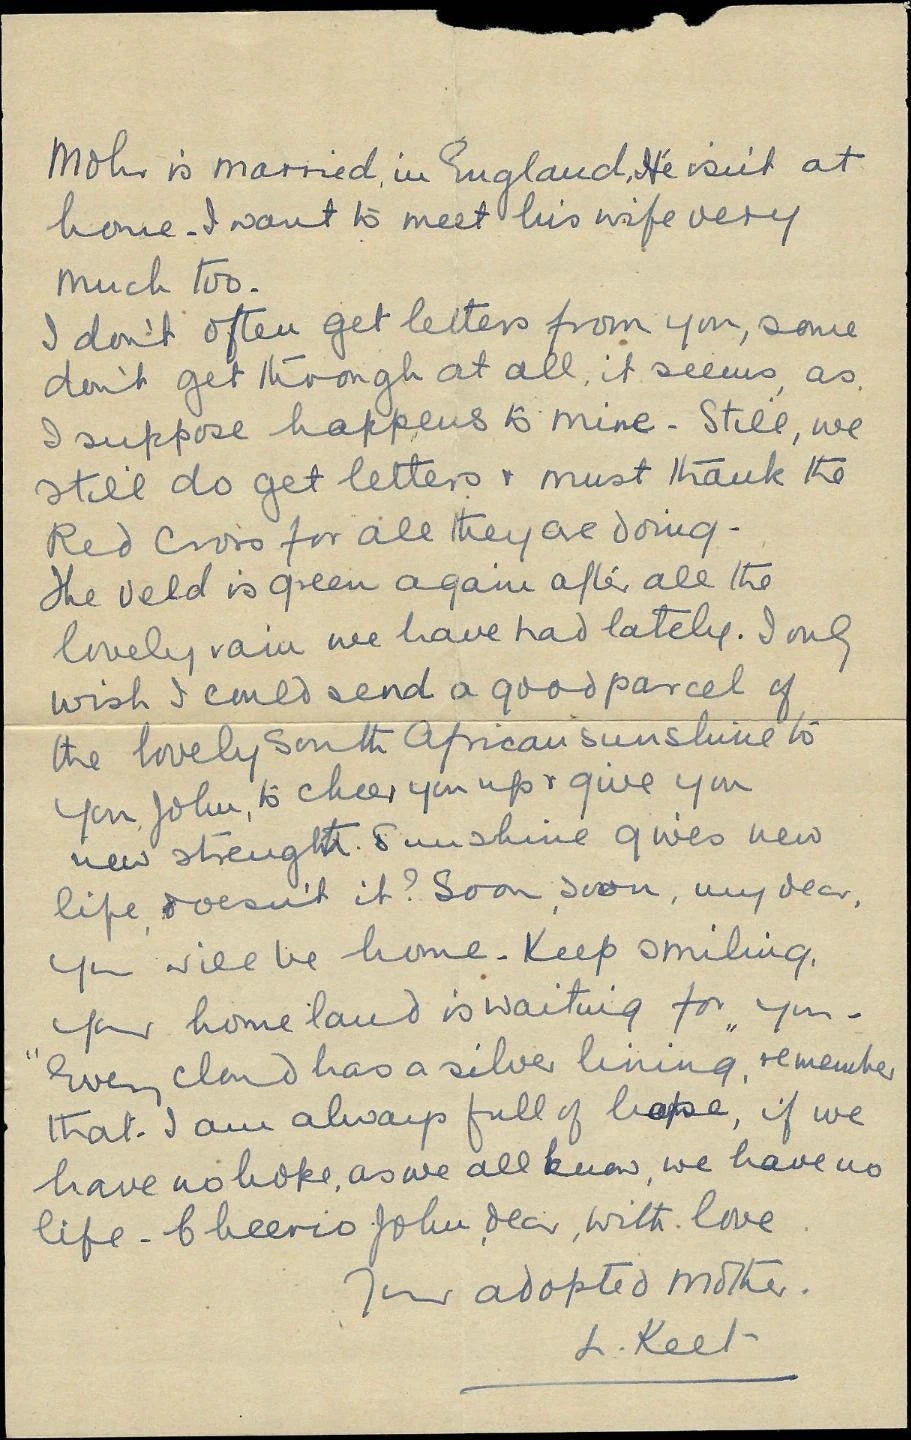 Mohr is married, in England. He isn't at
home - I want to meet his wife very
much too.
I don't often get letters from you, some
don't get through at all, it seems, as
I suppose happens to mine - Still, we
still do get letters & must thank the
Red Cross for all they are doing -
The veld is green again after all the
lovely rain we have had lately. I only
wish I could send a good parcel of
the lovely South African sunshine to
you, John, to cheer you up & give you
new strenght. Sunshine gives new
life, doesn't it? Soon, soon, my dear,
you will be home - Keep smiling,
your homeland is waiting for you -
"Every cloud has a silver lining", remember
that. I am always full of hope, if we
have no hope, as we all know, we have no
life - Cheerio John, dear, with love
Your adopted Mother.
L. Keet